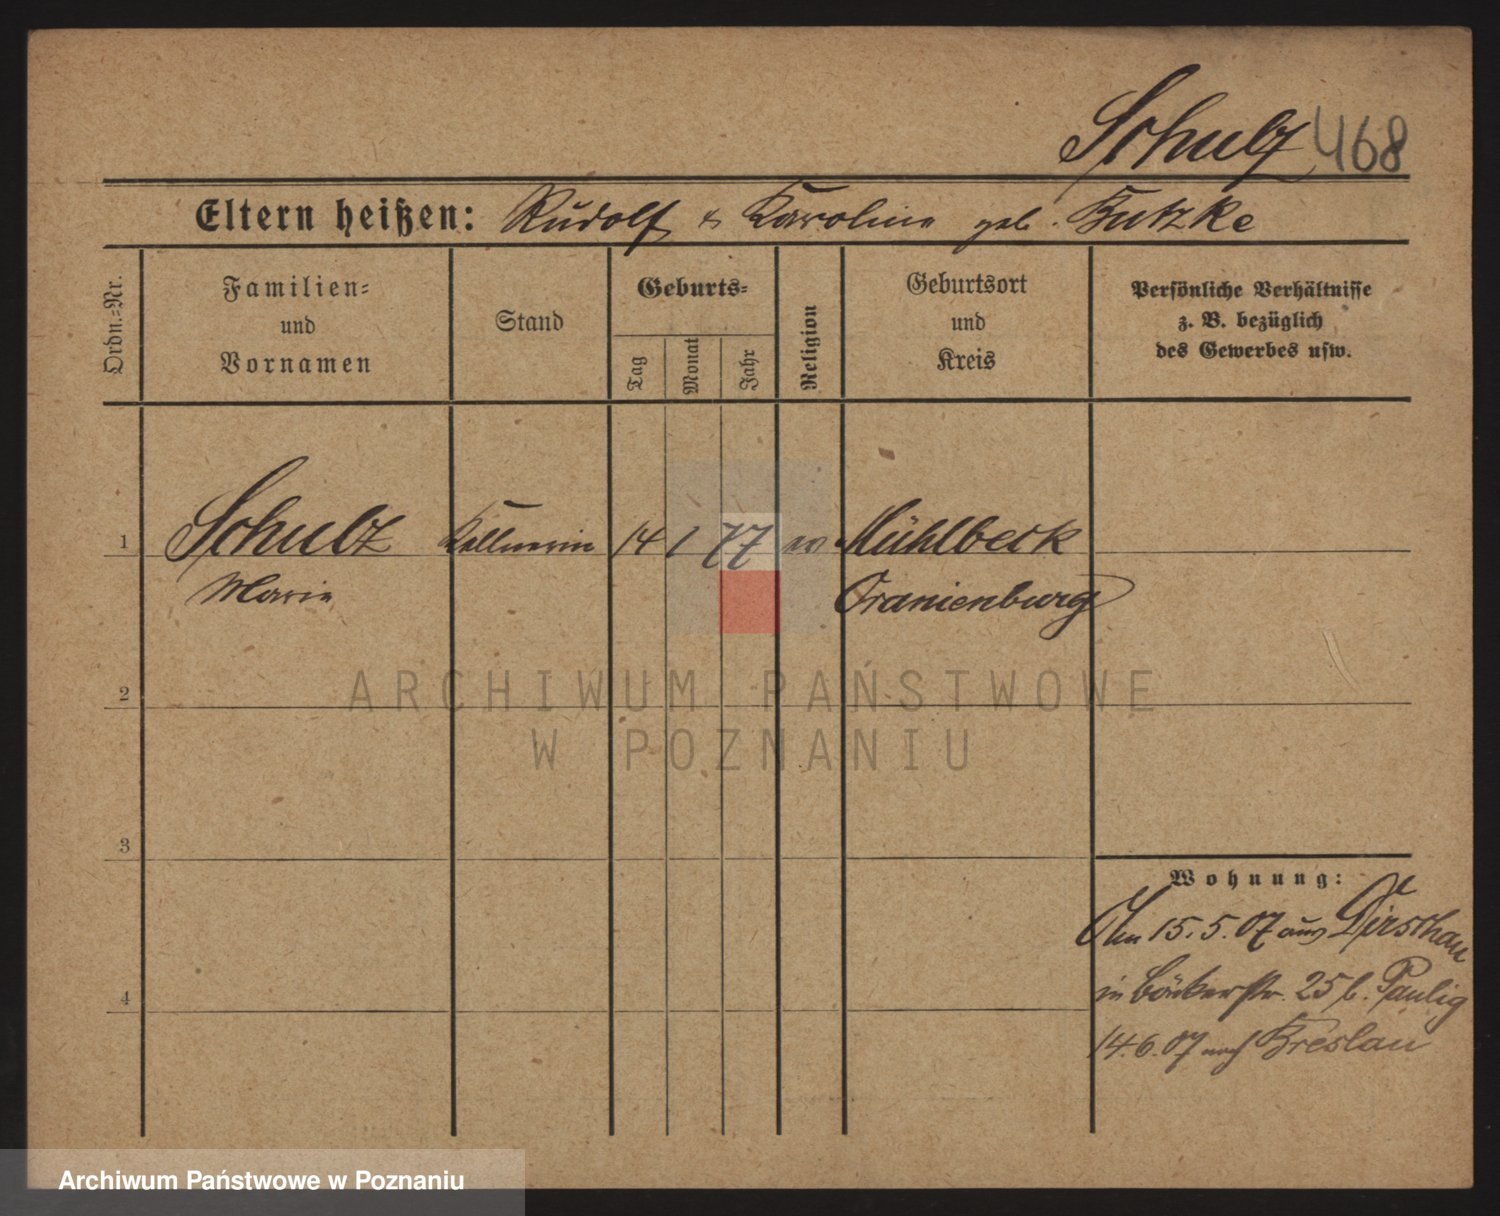 Schulz 468
Eltern heißen: Rudolf & Karoline geb. Kutzke
Ordn.-Nr.
Familien-
und
Vornamen
Stand
Geburts-
Tag
Monat
Jahr
Religion
Geburtsort
und
Kreis
Persönliche Verhältnisse
z. B. bezüglich
des Gewerbes usw.
1 Schulz Kellnerin 14 1 77 ev Mühlbeck
Marie Oranienburg
2
3
4
Wohnung:
Am 15.5.07 aus Dirschau
in Bäckerstr. 25 b. Paulig
14.6.07 nach Breslau
ARCHIWUM PAŃSTWOWE
W POZNANIU
Archiwum Państwowe w Poznaniu